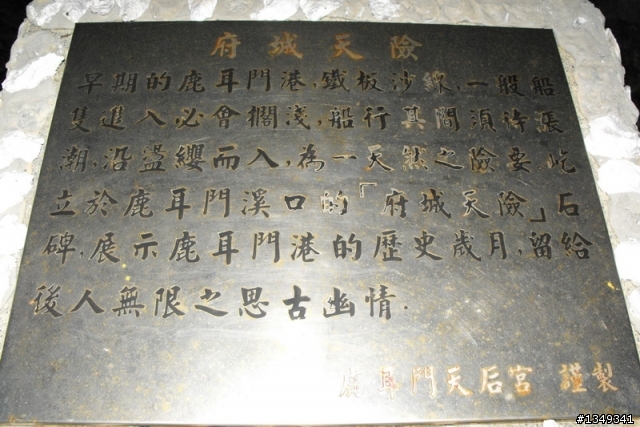 府城天險
早期的鹿耳門港，鐵板沙線，一般船
隻進入必會擱淺，船行其間須待漲
潮，沿盪纓而入，為一天然之險要屹
立於鹿耳門溪口的「府城天險」石
碑，展示鹿耳門港的歷史歲月，留給
後人無限之思古幽情．
鹿耳門天后宮 謹製
#1349341